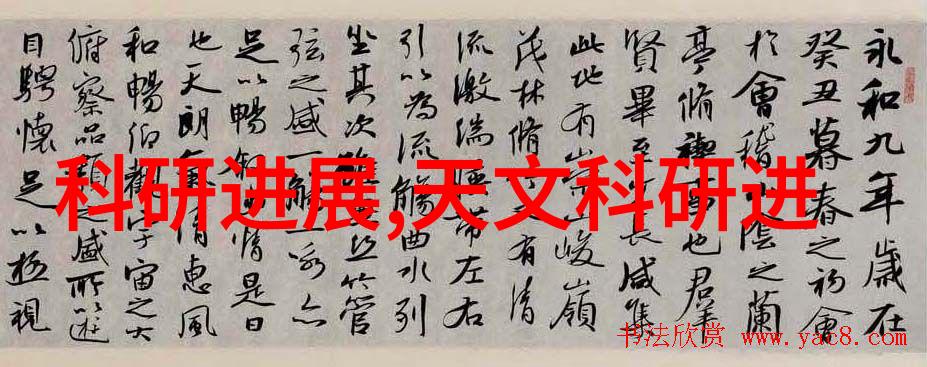 永和九年歲在
癸丑暮春之初會
於會稽山陰之蘭
亭脩禊事也羣
賢畢至少長咸集
此地有崇山峻嶺
茂林脩有清
流激湍暎帶左右
引以為流觴曲水列
坐其次雖無絲竹管
弦之盛一觴一詠亦
足以暢敘幽情是日
也天朗氣清惠風
和暢仰觀宇宙之大
俯察品類之盛所以遊
目騁懷足以極視
科研进展,天文科研进
书法欣赏 www.yac8.com